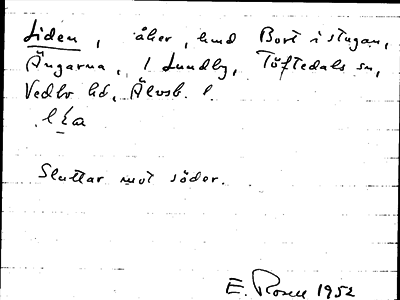 Liden, åker, hmd Bortistugan,
Ängarna, 1 Lundby, Töftedals sn,
Vedbo hd, Älvsb. l.
Sluttar mot söder.
E. Rosen 1952